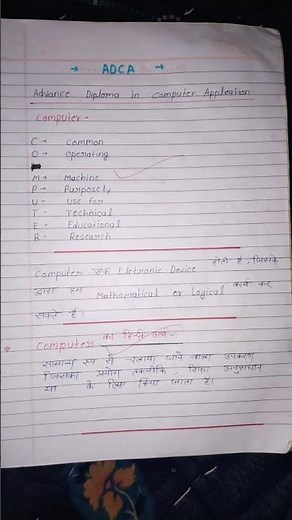 → ADCA →
Advance Diploma in Computer Application
Computer -
C → Common
O → Operating
M → Machine
P → Purposely
U - Use for
T - Technical
E - Educational
R - Research
Computer एक Eletronic Device होती है, जिसके
द्वारा हम Mathematical or Logical कार्य कर
सकते है।
Computer का हिन्दी अर्थ -
सामान्य रूप से चलाया जाने वाला उपकरण
जिसका प्रयोग तकनीकि, शिक्षा अनुसंधान
या के लिए किया जाता है।